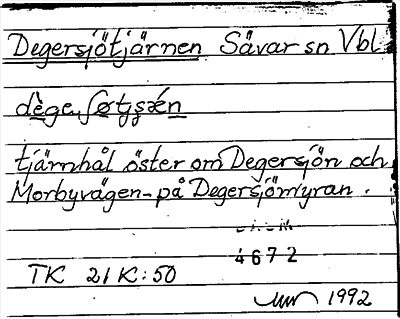 Degersjötjärnen Sävar sn Vbl
tjärnhål öster om Degersjön och
Morbyvägen - på Degersjömyran.
4672
TK 21K:50
1992